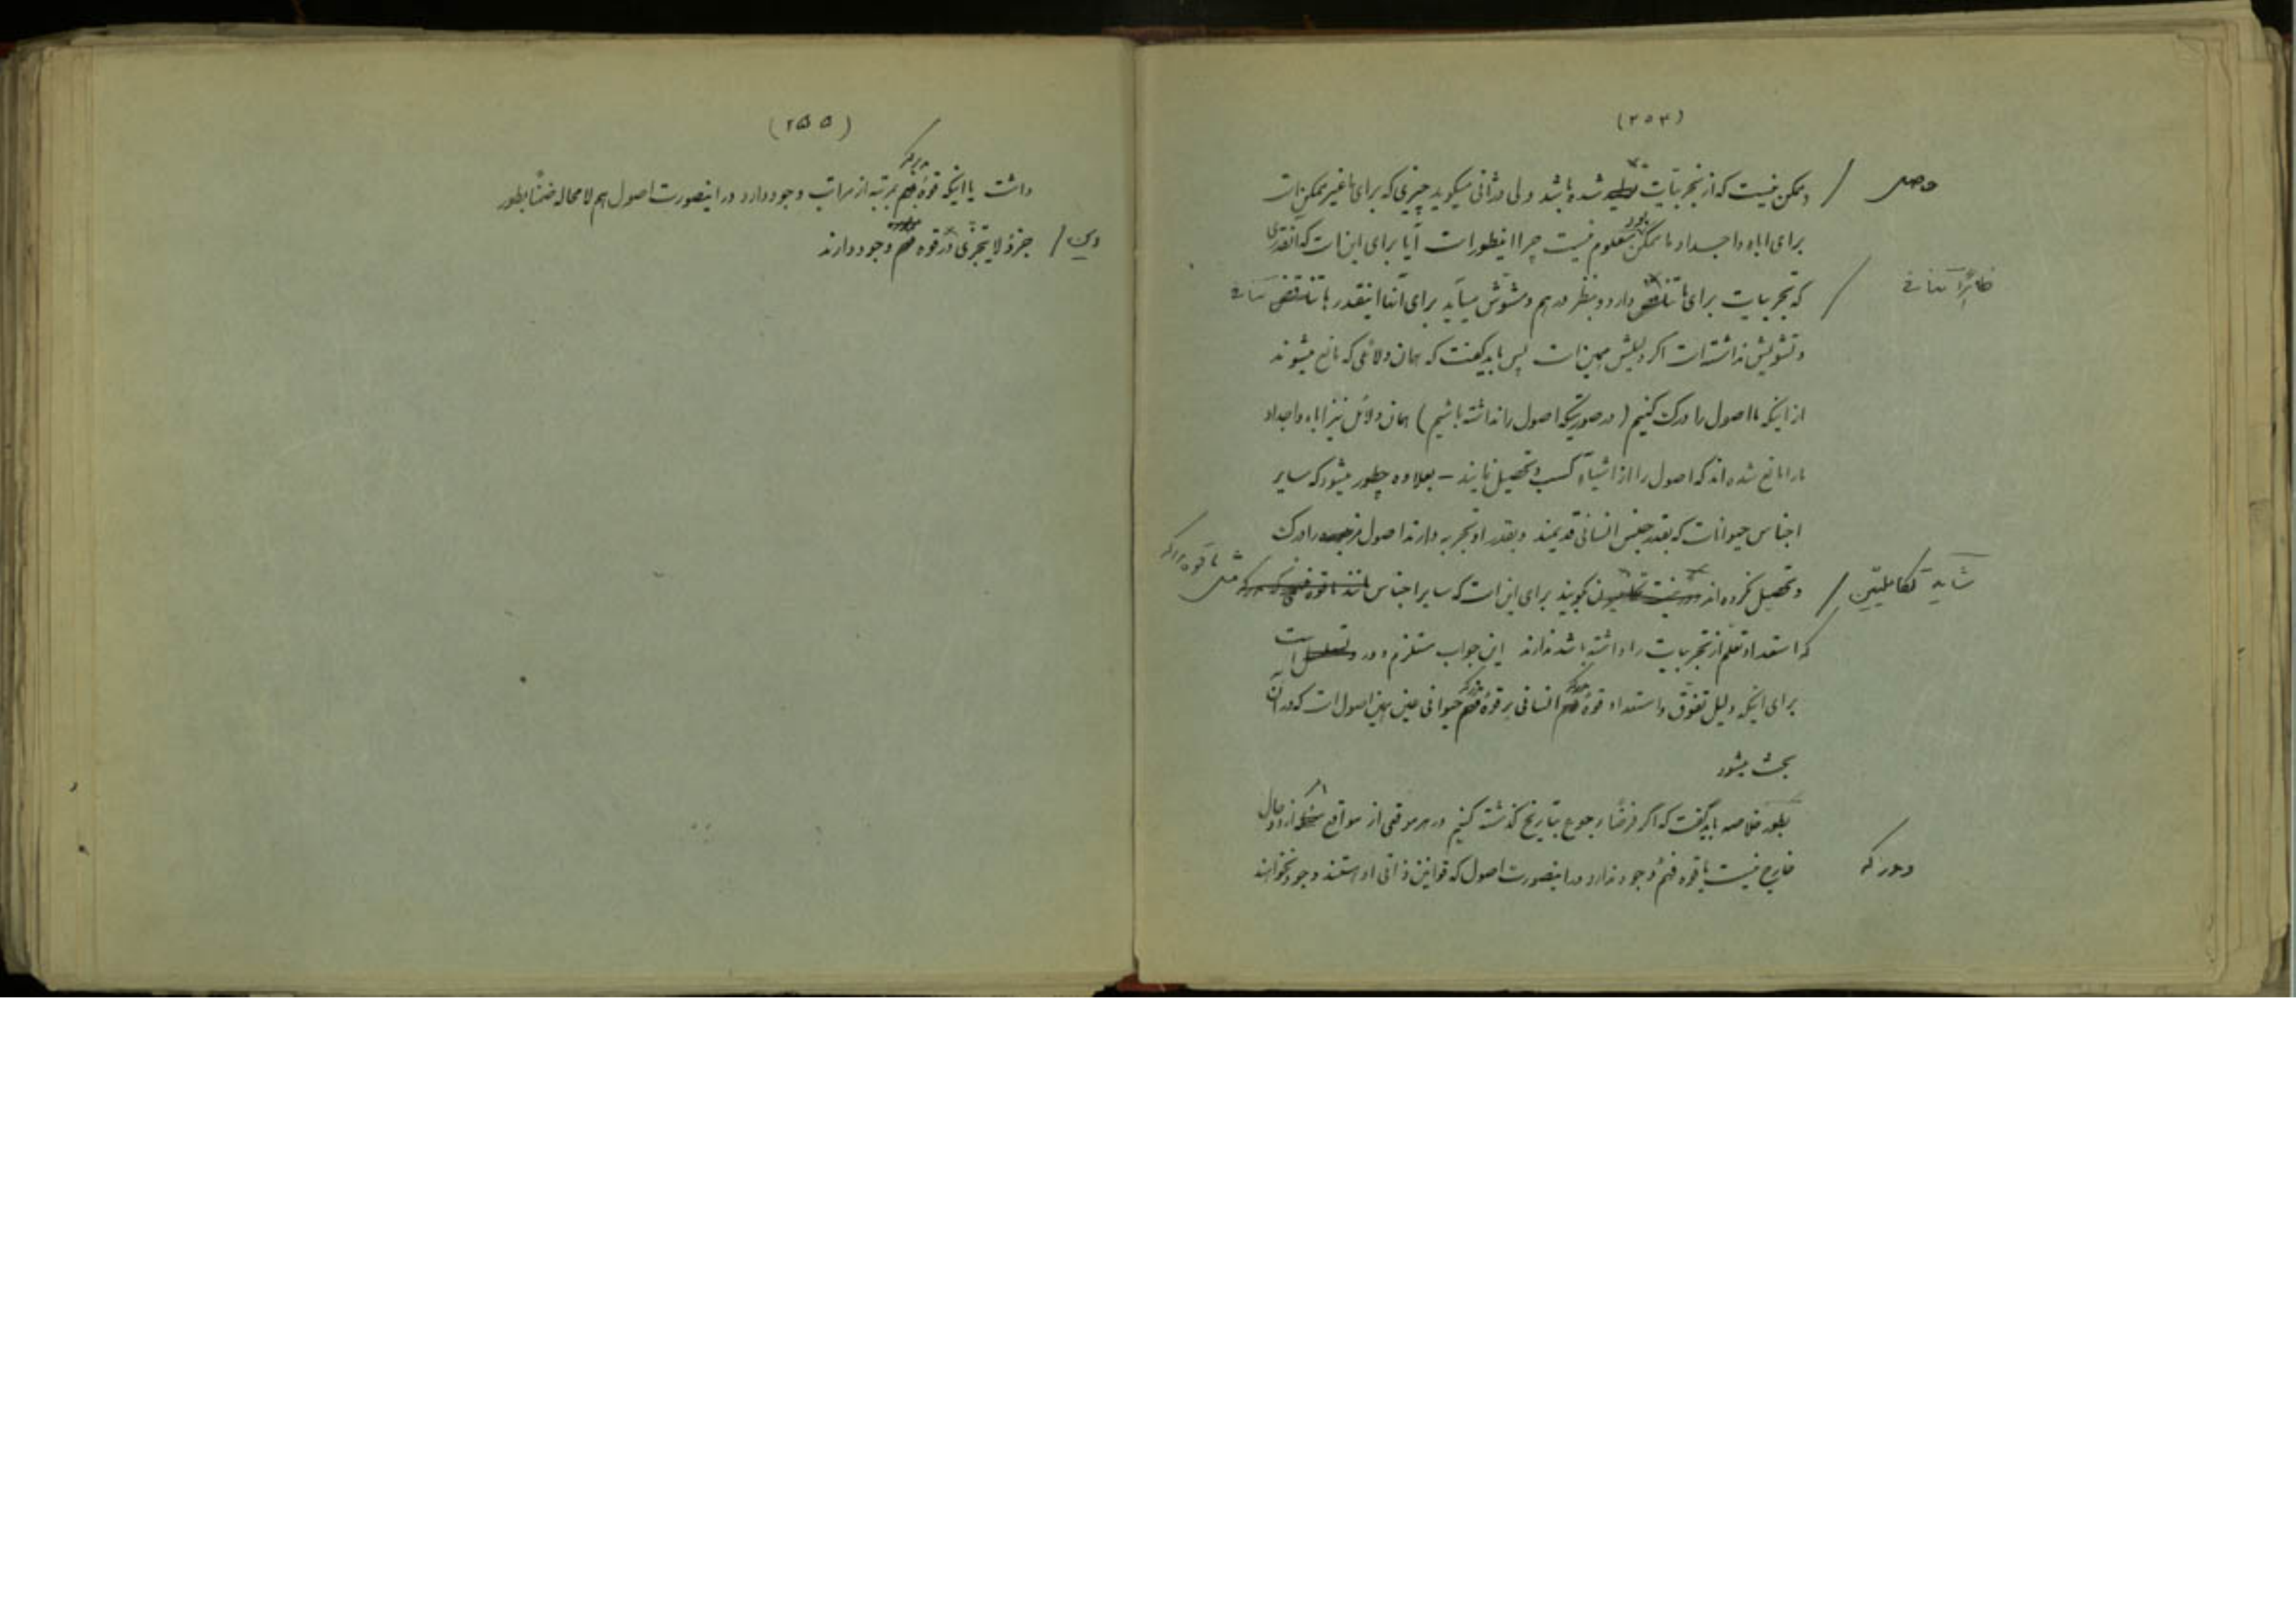 (۲۵۴)
و ممکن نیست که از تجربیات تولید شده باشد ولی وراثی میگوید چیزی که برای ما غیر ممکن است
برای اباء و اجداد ما ممکن بود معلوم نیست چرا اینطور است آیا برای این است که آنقدری
که تجربیات برای ما تناقض دارد و بنظر درهم و مشوش میآید برای آنها اینقدر ها تناقض
و تشویش نداشته است اگر دلیلش همین است پس باید گفت که همان دلائلی که مانع میشوند
از اینکه ما اصول را درک کنیم (در صورتیکه اصول را نداشته باشیم) همان دلائل نیز اباء و اجداد
ما را مانع شده اند که اصول را از اشیاء کسب و تحصیل نمایند - بعلاوه چطور میشود که سایر
اجناس حیوانات که بقدر جنس انسانی قدیمند و بقدر او تجربه دارند اصول را درک
و تحصیل نکرده اند گویند برای این است که سایر اجناس مثل ما قوه مدرکه
که استعداد تعلم از تجربیات را داشته باشد ندارند این جواب مستلزم دور است
برای اینکه دلیل تفوق و استعداد قوهٔ مدرکه انسانی بر قوهٔ مدرکه حیوانی عین همین اصول است که در آن
بحث میشود
بطور خلاصه باید گفت که اگر فرضاً رجوع بتاریخ گذشته کنیم در هر موقعی از مواقع امر از دو حال
خارج نیست یا قوه فهم وجود ندارد در اینصورت اصول که قوانین ذاتی او هستند وجود نخواهند
شاید تکاملیین
و مدرکه
(۲۵۵)
داشت یا اینکه قوهٔ مدرکه بمرتبه از مراتب وجود دارد در اینصورت اصول هم لامحاله ضمناً بطور
جزء لا یتجزی در قوه فهم وجود دارند